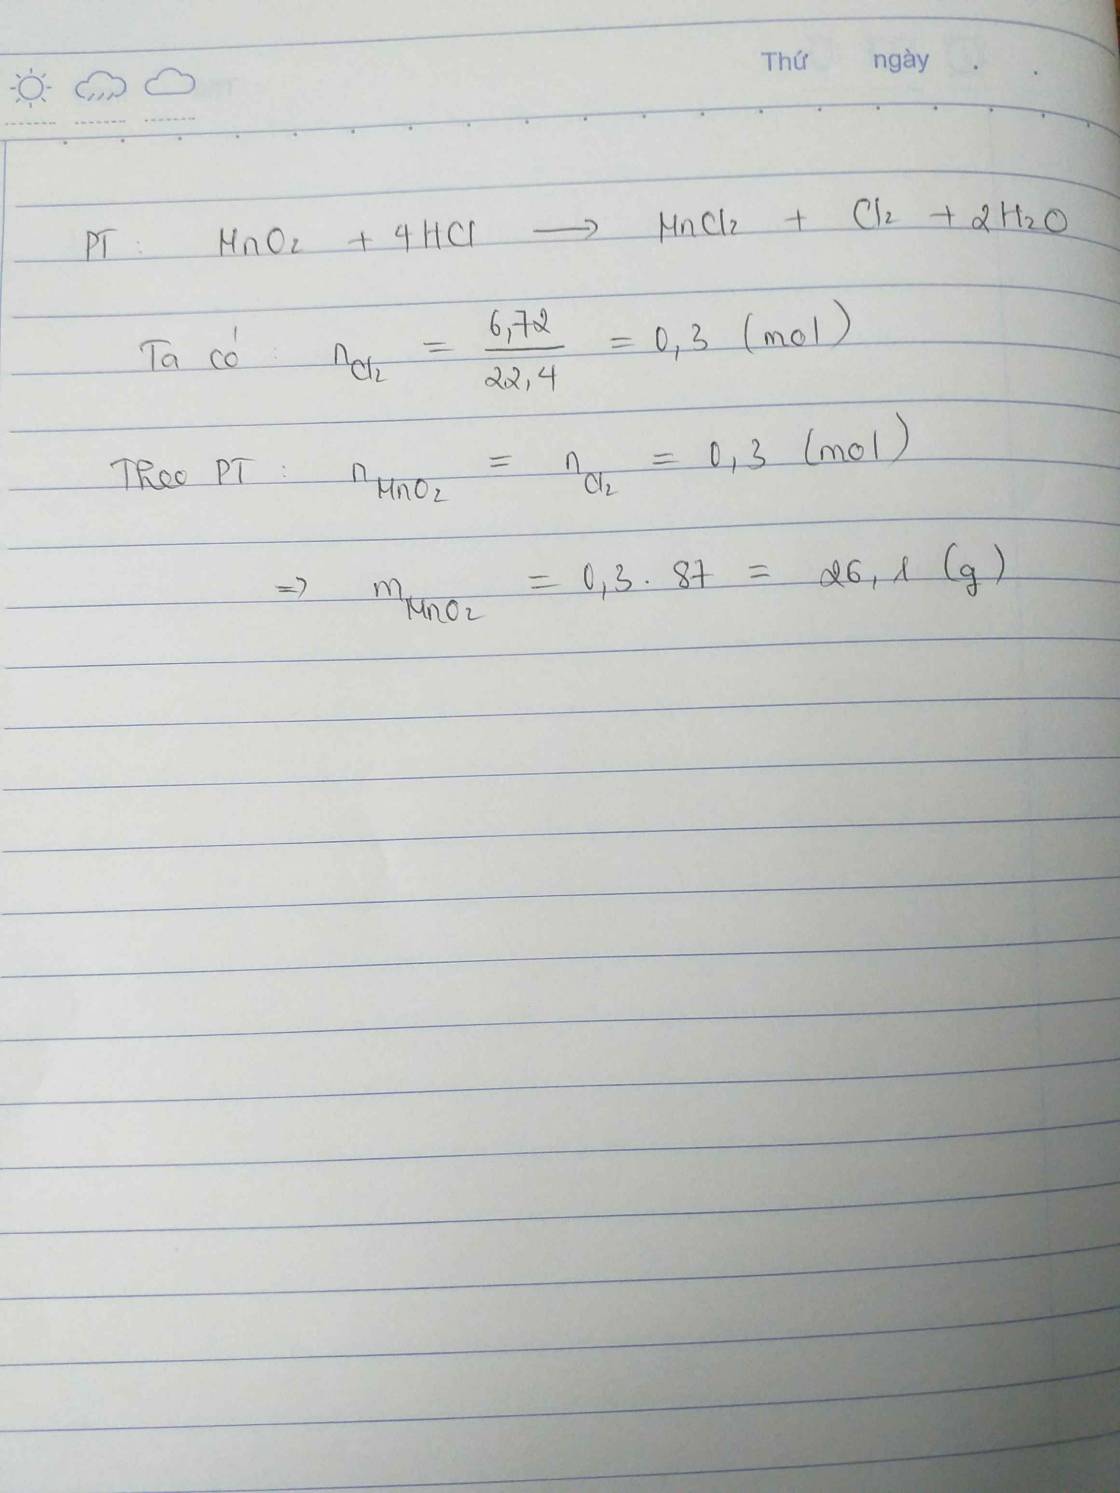 Thứ ngày
PT: MnO₂ + 4HCl ⟶ MnCl₂ + Cl₂ + 2H₂O
Ta có: n_Cl₂ = 6,72/22,4 = 0,3 (mol)
Theo PT: n_MnO₂ = n_Cl₂ = 0,3 (mol)
=> m_MnO₂ = 0,3 . 87 = 26,1 (g)